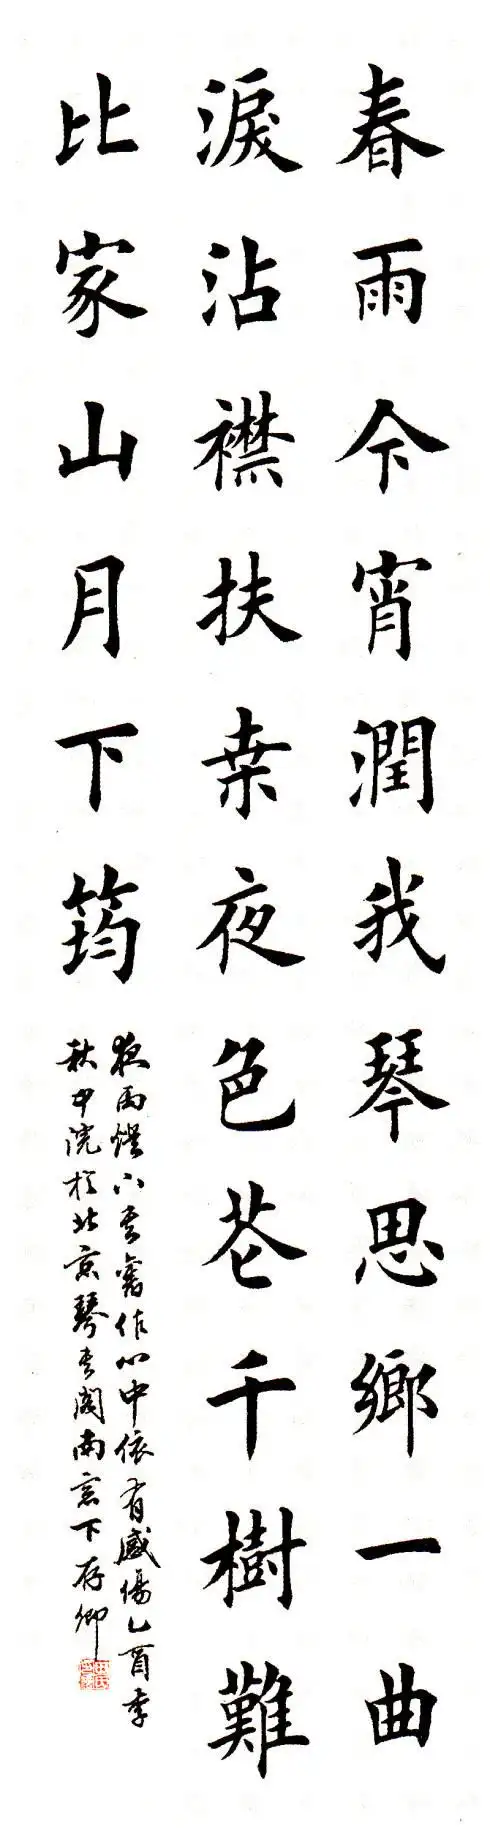 春雨今宵潤我琴思鄉一曲
淚沾襟扶桒夜色花千樹難
比家山月下筠
夜雨燈下書舊作心中依有感傷乙酉季
秋中浣於北京琴書閣南窗下存卿